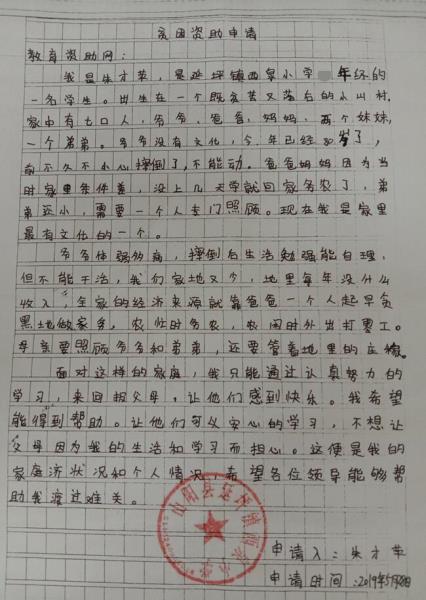 贫困资助申请
教育资助网：
我是朱才苹，是延坪镇西泉小学年级的
一名学生。出生在一个既贫苦又落后的小山村，
家中有七口人，爷爷、爸爸、妈妈、两个妹妹，
一个弟弟。爷爷没有文化，今年已经80岁了，
前不久不小心摔倒了，不能动。爸爸妈妈因为当
时家里条件差，没上几天学就回家务农了，弟
弟还小，需要一个人专门照顾。现在我是家里
最有文化的一个。
爷爷体弱多病，摔倒后生活勉强能自理，
但不能干活，我们家地又少，地里每年没什么
收入，全家的经济来源就靠爸爸一个人起早贪
黑地做家务，农忙时务农，农闲时外出打零工。
母亲要照顾爷爷和弟弟，还要管着地里的庄稼。
面对这样的家庭，我只能通过认真努力的
学习，来回报父母，让他们感到快乐。我希望
能得到帮助。让他们可以安心的学习，不想让
父母因为我的生活和学习而担心。这便是我的
家庭济状况和个人情况，希望各位领导能够帮
助我渡过难关。
申请人：朱才苹
申请时间：2019年5月